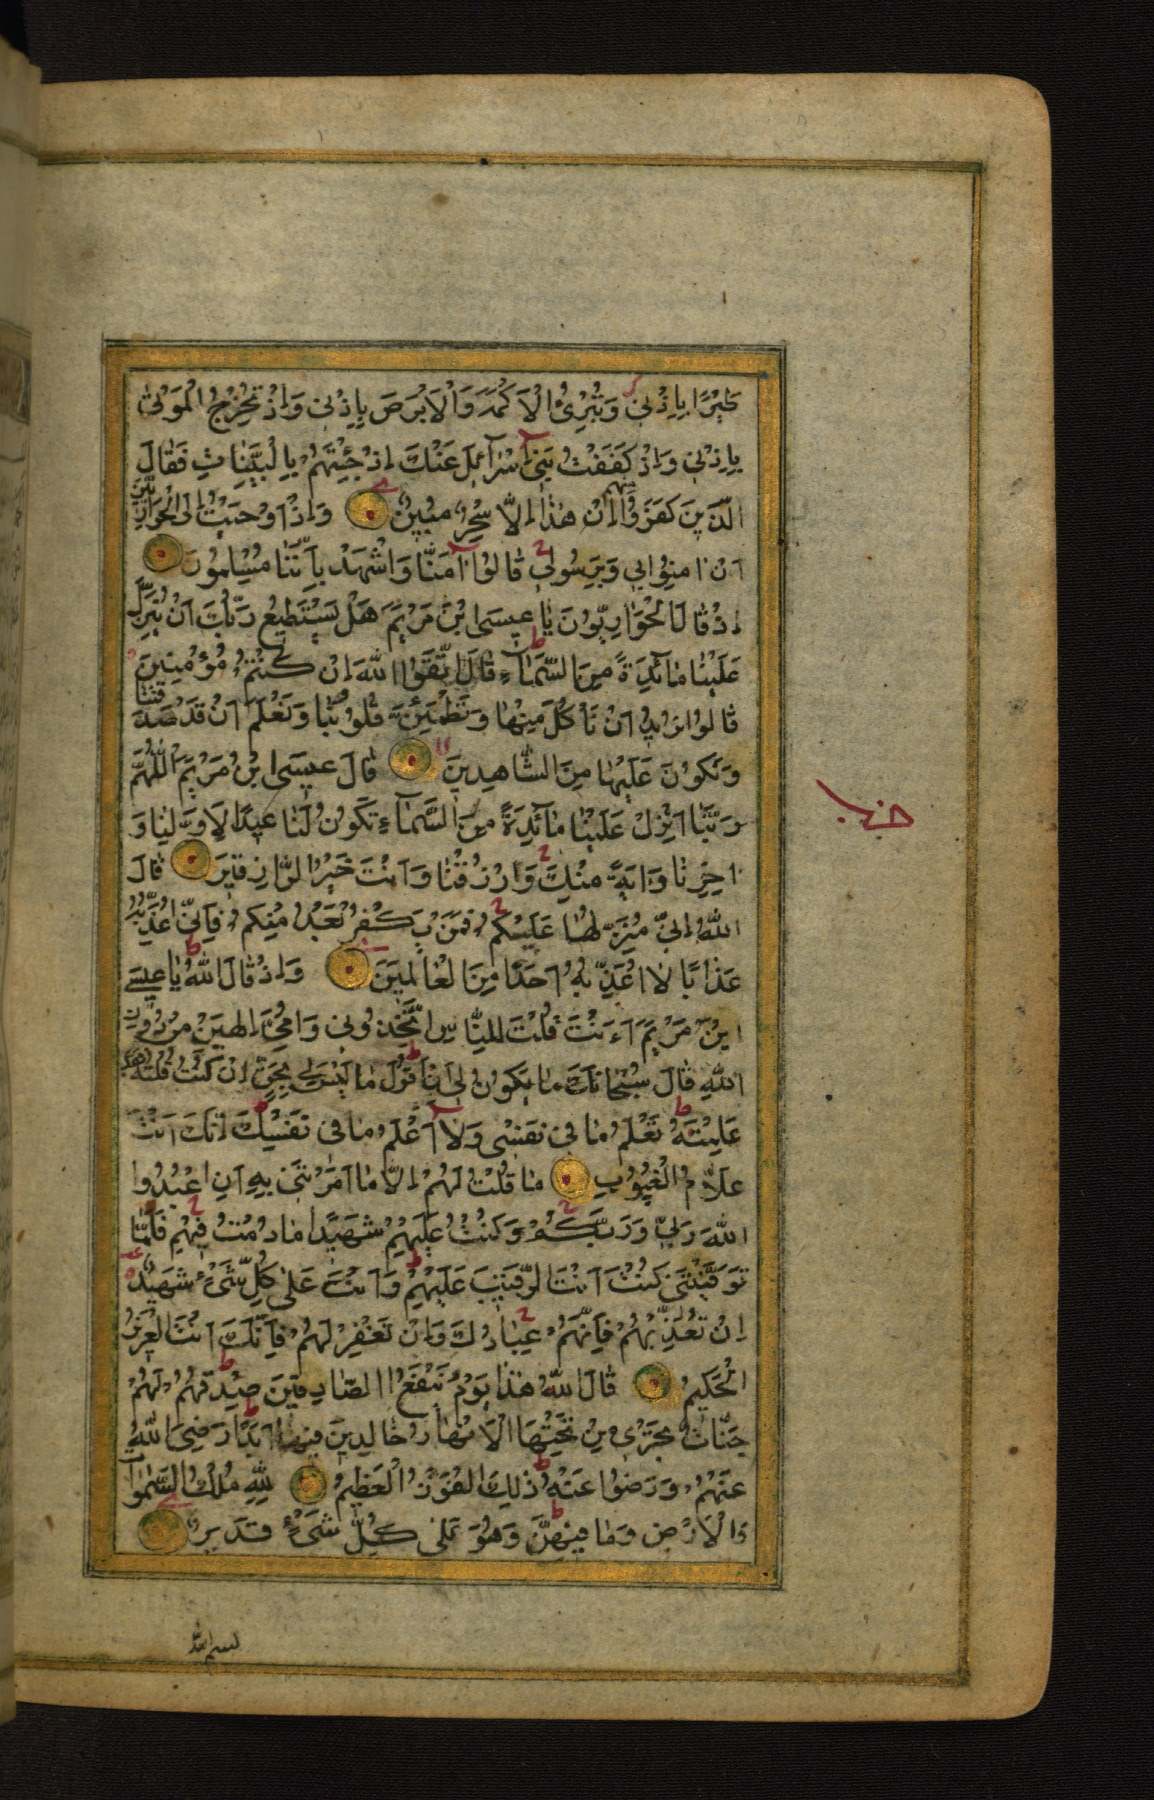 طَيْرًا بِاِذْنِي وَتُبْرِئُ الْاَكْمَهَ وَالْاَبْرَصَ بِاِذْنِي وَاِذْ تُخْرِجُ الْمَوْتٰى
بِاِذْنِي وَاِذْ كَفَفْتُ بَنِيٓ اِسْرَآئِلَ عَنْكَ اِذْ جِئْتَهُمْ بِالْبَيِّنَاتِ فَقَالَ
الَّذِينَ كَفَرُوا مِنْهُمْ اِنْ هٰذَا اِلَّا سِحْرٌ مُبِينٌ وَاِذْ اَوْحَيْتُ اِلَى الْحَوَارِيّٖنَ
اَنْ اٰمِنُوا بِي وَبِرَسُولِي قَالُوٓا اٰمَنَّا وَاشْهَدْ بِاَنَّنَا مُسْلِمُونَ
اِذْ قَالَ الْحَوَارِيُّونَ يَا عِيسَى ابْنَ مَرْيَمَ هَلْ يَسْتَطِيعُ رَبُّكَ اَنْ يُنَزِّلَ
عَلَيْنَا مَآئِدَةً مِنَ السَّمَآءِ قَالَ اتَّقُوا اللّٰهَ اِنْ كُنْتُمْ مُؤْمِنِينَ
قَالُوا نُرِيدُ اَنْ نَأْكُلَ مِنْهَا وَتَطْمَئِنَّ قُلُوبُنَا وَنَعْلَمَ اَنْ قَدْ صَدَقْتَنَا
وَنَكُونَ عَلَيْهَا مِنَ الشَّاهِدِينَ قَالَ عِيسَى ابْنُ مَرْيَمَ اللّٰهُمَّ
رَبَّنَا اَنْزِلْ عَلَيْنَا مَآئِدَةً مِنَ السَّمَآءِ تَكُونُ لَنَا عِيدًا لِاَوَّلِنَا وَ
اٰخِرِنَا وَاٰيَةً مِنْكَ وَارْزُقْنَا وَاَنْتَ خَيْرُ الرَّازِقِينَ قَالَ
اللّٰهُ اِنِّي مُنَزِّلُهَا عَلَيْكُمْ فَمَنْ يَكْفُرْ بَعْدُ مِنْكُمْ فَاِنِّي اُعَذِّبُهُ
عَذَابًا لَا اُعَذِّبُهُ اَحَدًا مِنَ الْعَالَمِينَ وَاِذْ قَالَ اللّٰهُ يَا عِيسَى
ابْنَ مَرْيَمَ ءَاَنْتَ قُلْتَ لِلنَّاسِ اتَّخِذُونِي وَاُمِّيَ اِلٰهَيْنِ مِنْ دُونِ
اللّٰهِ قَالَ سُبْحَانَكَ مَا يَكُونُ لِي اَنْ اَقُولَ مَا لَيْسَ لِي بِحَقٍّ اِنْ كُنْتُ قُلْتُهُ فَقَدْ
عَلِمْتَهُ تَعْلَمُ مَا فِي نَفْسِي وَلَآ اَعْلَمُ مَا فِي نَفْسِكَ اِنَّكَ اَنْتَ
عَلَّامُ الْغُيُوبِ مَا قُلْتُ لَهُمْ اِلَّا مَا اَمَرْتَنِي بِهِ اَنِ اعْبُدُوا
اللّٰهَ رَبِّي وَرَبَّكُمْ وَكُنْتُ عَلَيْهِمْ شَهِيدًا مَا دُمْتُ فِيهِمْ فَلَمَّا
تَوَفَّيْتَنِي كُنْتَ اَنْتَ الرَّقِيبَ عَلَيْهِمْ وَاَنْتَ عَلٰى كُلِّ شَيْءٍ شَهِيدٌ
اِنْ تُعَذِّبْهُمْ فَاِنَّهُمْ عِبَادُكَ وَاِنْ تَغْفِرْ لَهُمْ فَاِنَّكَ اَنْتَ الْعَزِيزُ
الْحَكِيمُ قَالَ اللّٰهُ هٰذَا يَوْمُ يَنْفَعُ الصَّادِقِينَ صِدْقُهُمْ لَهُمْ
جَنَّاتٌ تَجْرِي مِنْ تَحْتِهَا الْاَنْهَارُ خَالِدِينَ فِيهَا اَبَدًا رَضِيَ اللّٰهُ
عَنْهُمْ وَرَضُوا عَنْهُ ذٰلِكَ الْفَوْزُ الْعَظِيمُ لِلّٰهِ مُلْكُ السَّمٰوَاتِ
وَالْاَرْضِ وَمَا فِيهِنَّ وَهُوَ عَلٰى كُلِّ شَيْءٍ قَدِيرٌ
حزب
بسم الله